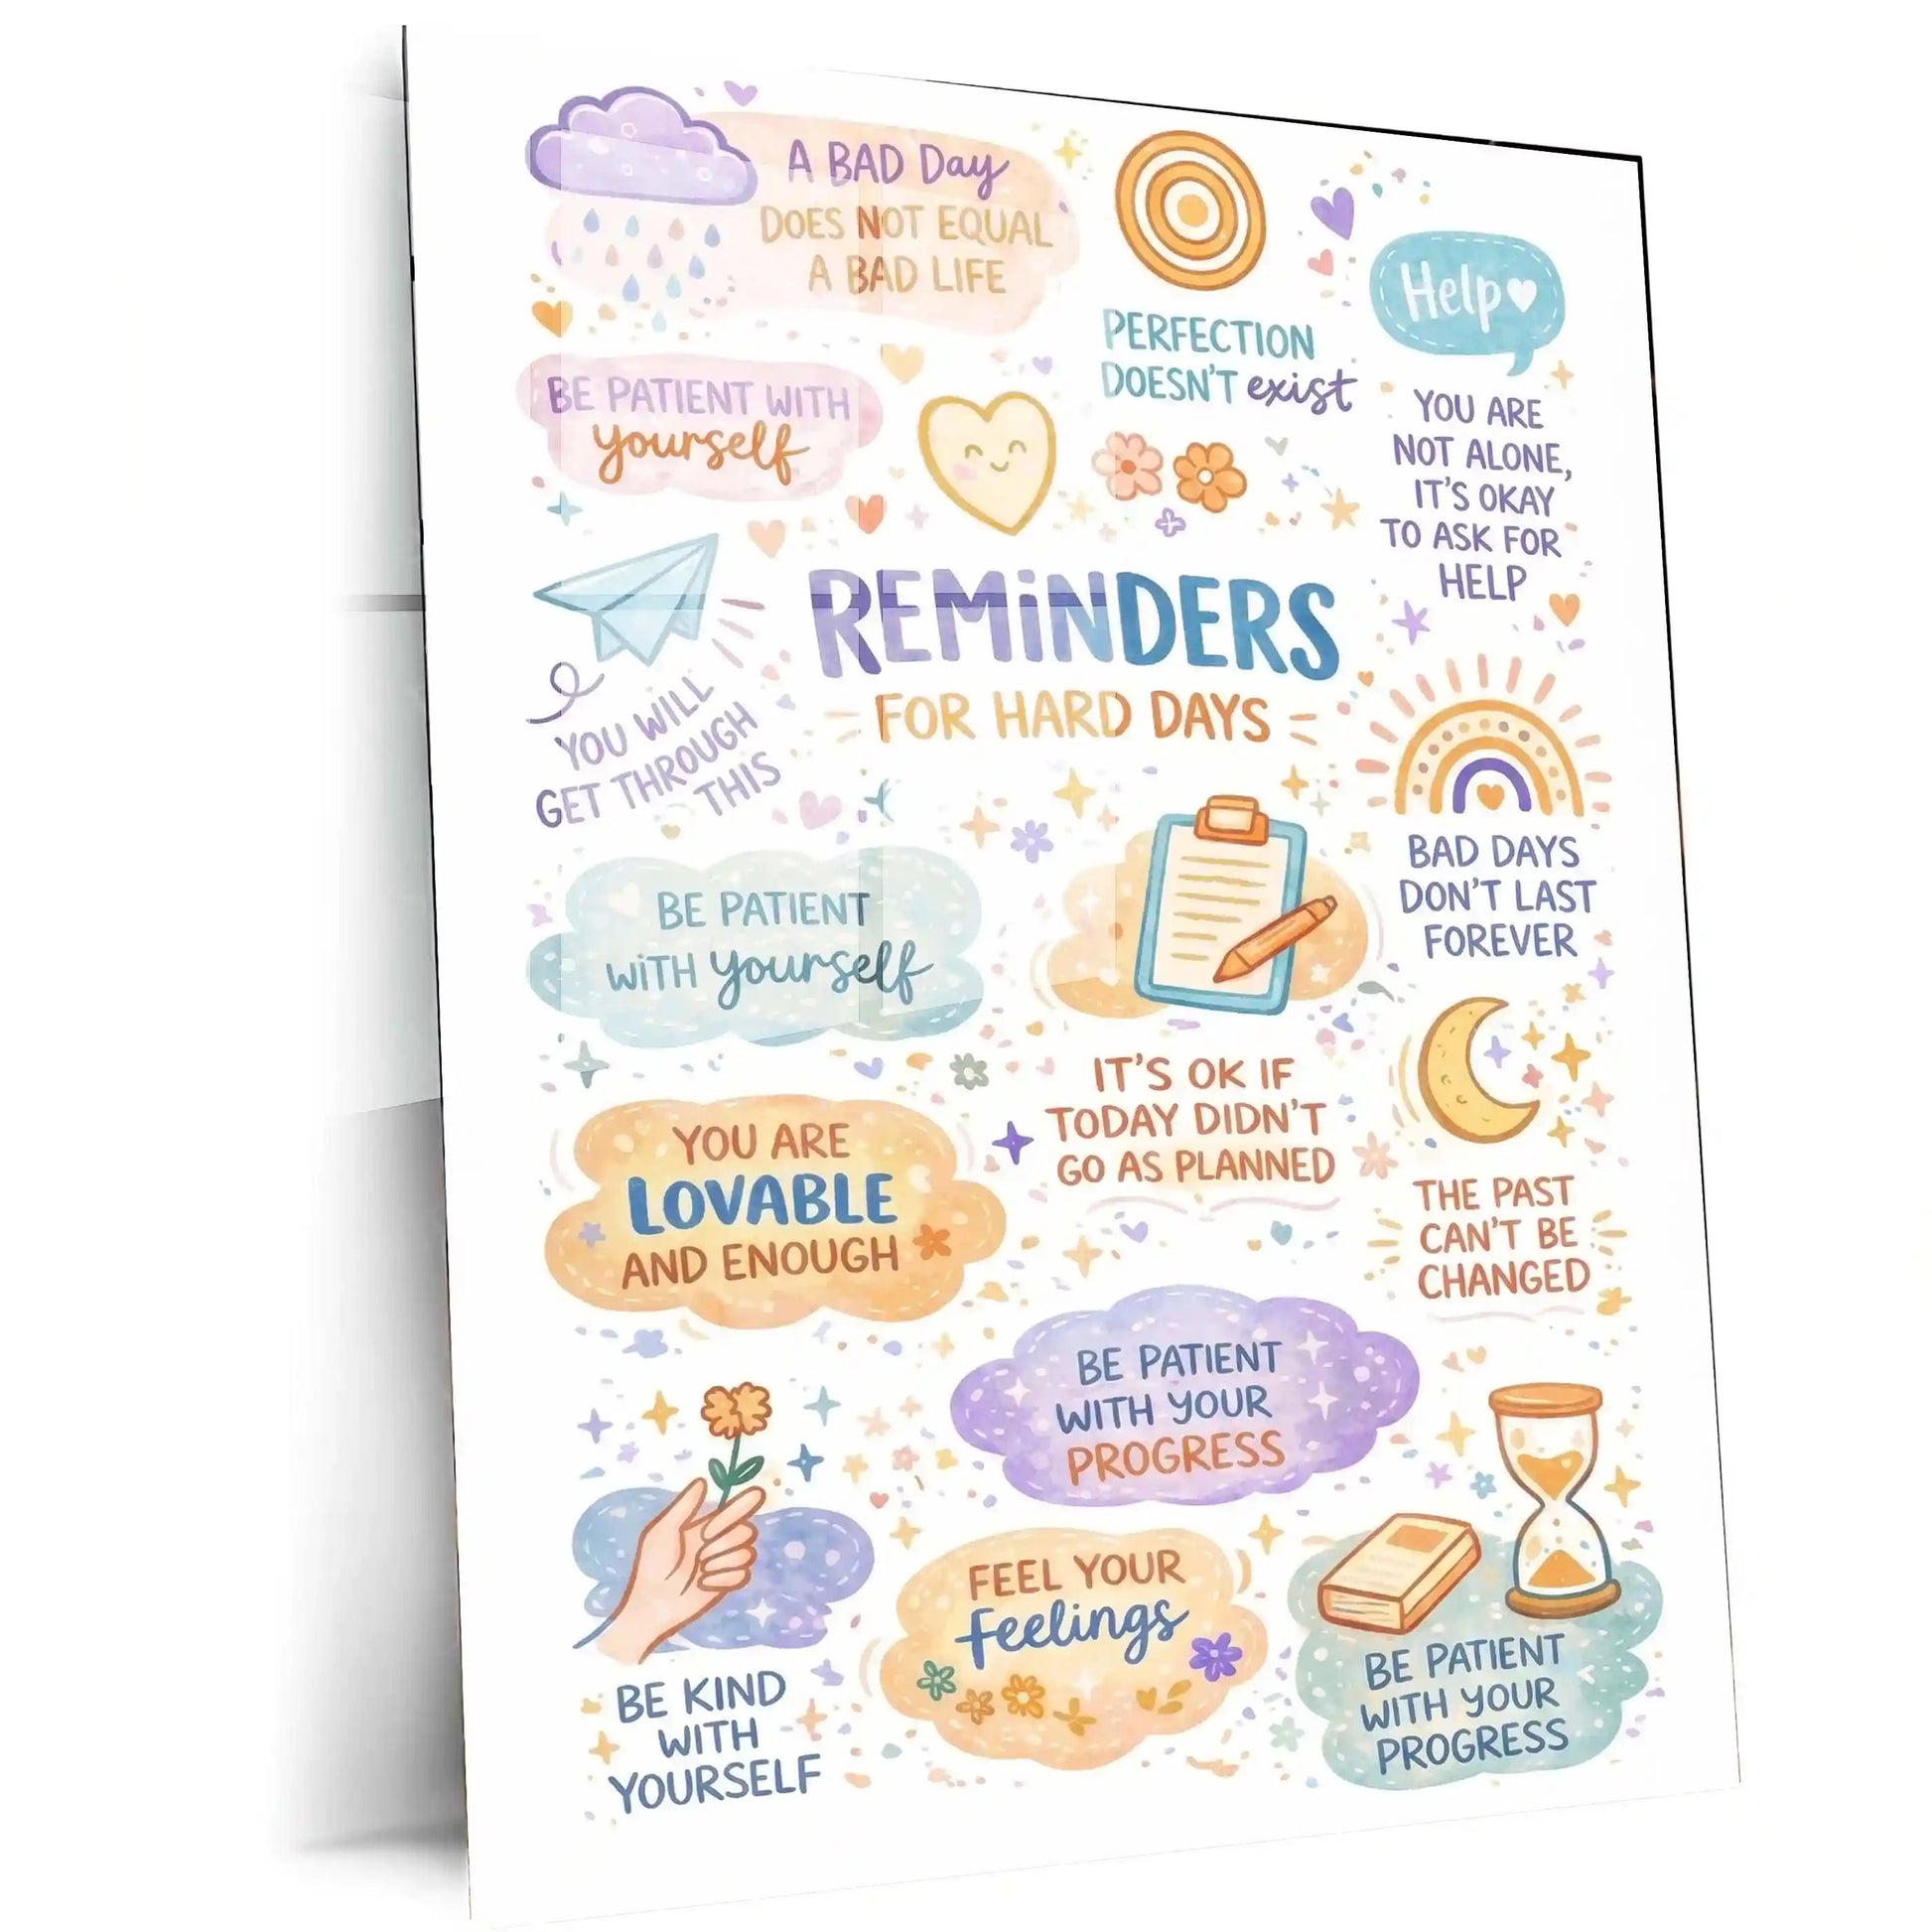 A BAD Day
DOES NOT EQUAL
A BAD LIFE
PERFECTION
DOESN'T exist
Help
YOU ARE
NOT ALONE,
IT'S OKAY
TO ASK FOR
HELP
BE PATIENT WITH
yourself
REMiNDERS
FOR HARD DAYS
YOU WiLL
GET THROUGH
THIS
BAD DAYS
DON'T LAST
FOREVER
BE PATIENT
WiTH yourself
IT'S OK IF
TODAY DIDN'T
GO AS PLANNED
YOU ARE
LOVABLE
AND ENOUGH
THE PAST
CAN'T BE
CHANGED
BE PATIENT
WITH YOUR
PROGRESS
BE KIND
WITH
YOURSELF
FEEL YOUR
Feelings
BE PATIENT
WITH YOUR
PROGRESS